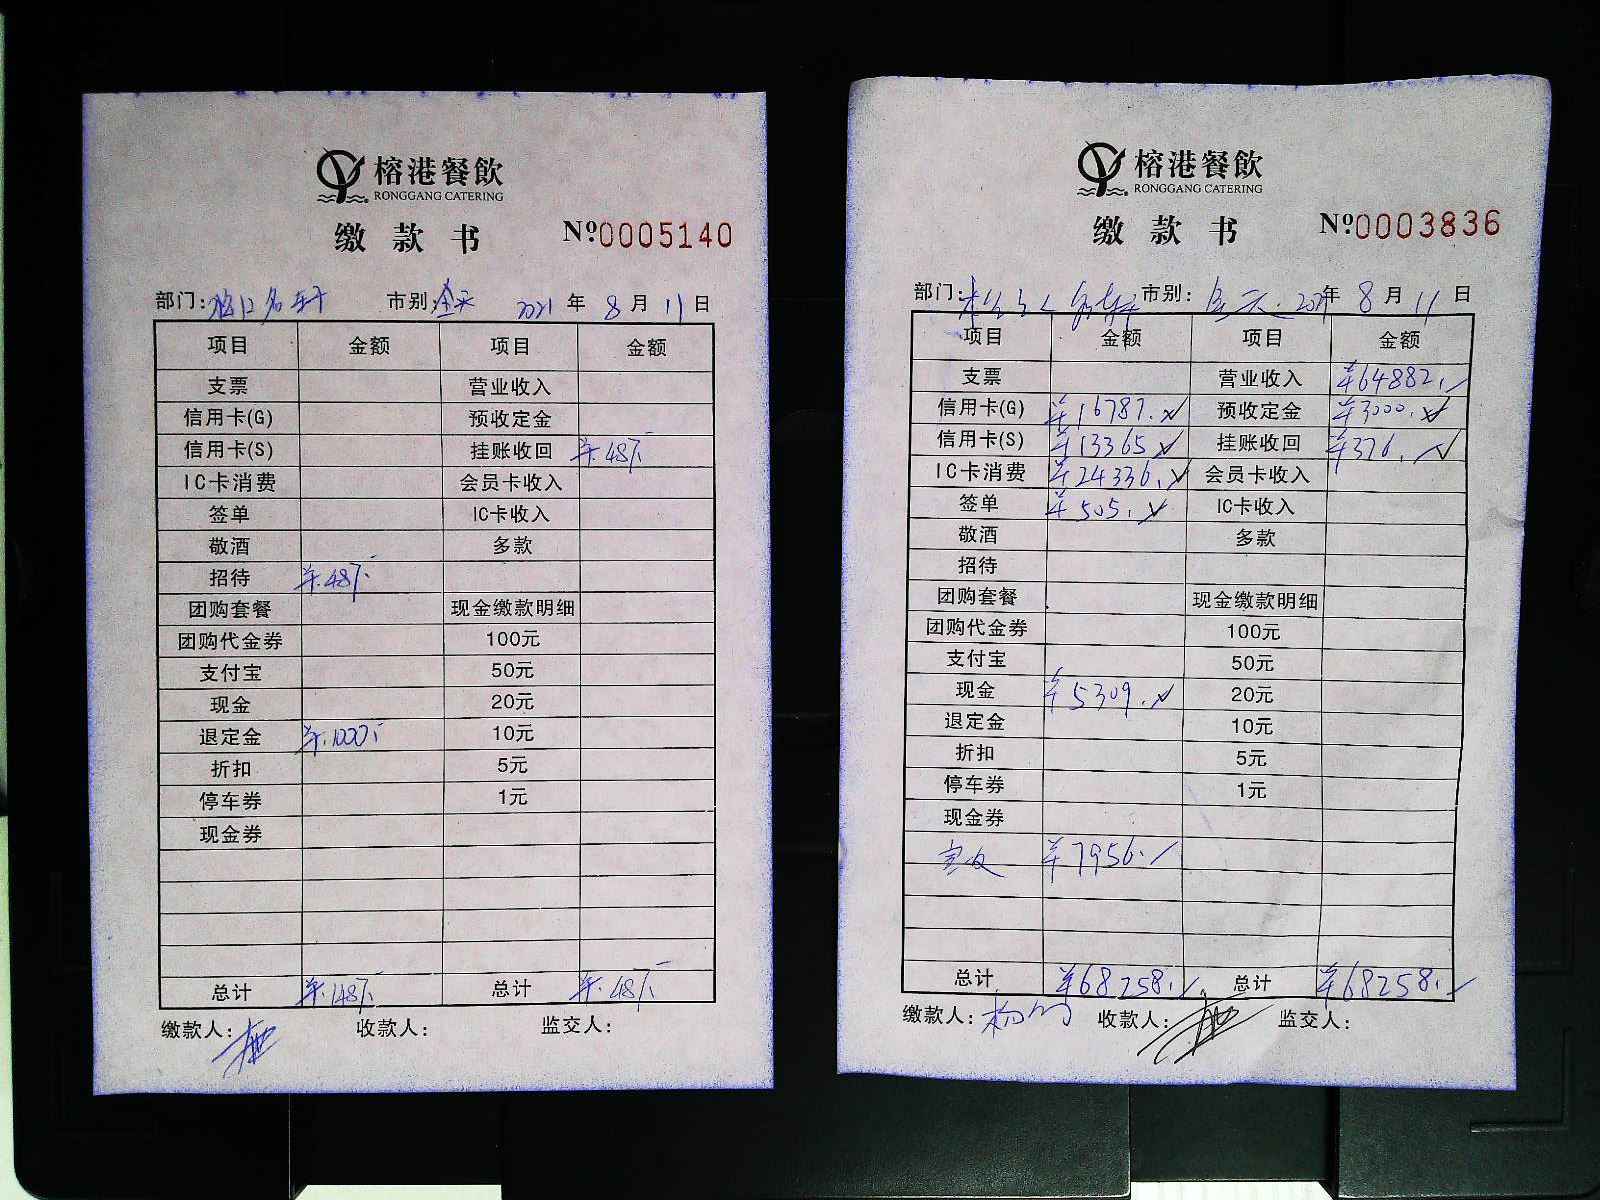 榕港餐飲
RONGGANG CATERING
缴款书 №0005140
部门: 市别:全天 2021年8月11日
项目 金额 项目 金额
支票 营业收入
信用卡(G) 预收定金
信用卡(S) 挂账收回
IC卡消费 会员卡收入
签单 IC卡收入
敬酒 多款
招待
团购套餐 现金缴款明细
团购代金券 100元
支付宝 50元
现金 20元
退定金 ¥1000 10元
折扣 5元
停车券 1元
现金券
总计 总计
缴款人: 收款人: 监交人:
榕港餐飲
RONGGANG CATERING
缴款书 №0003836
部门: 市别:全天 2021年8月11日
项目 金额 项目 金额
支票 营业收入 ¥64882.
信用卡(G) ¥16787. 预收定金 ¥3000.
信用卡(S) ¥13365 挂账收回 ¥376.
IC卡消费 ¥24336. 会员卡收入
签单 ¥505. IC卡收入
敬酒 多款
招待
团购套餐 现金缴款明细
团购代金券 100元
支付宝 50元
现金 ¥5309. 20元
退定金 10元
折扣 5元
停车券 1元
现金券
¥7956.
总计 ¥68258. 总计 ¥68258.
缴款人: 收款人: 监交人: